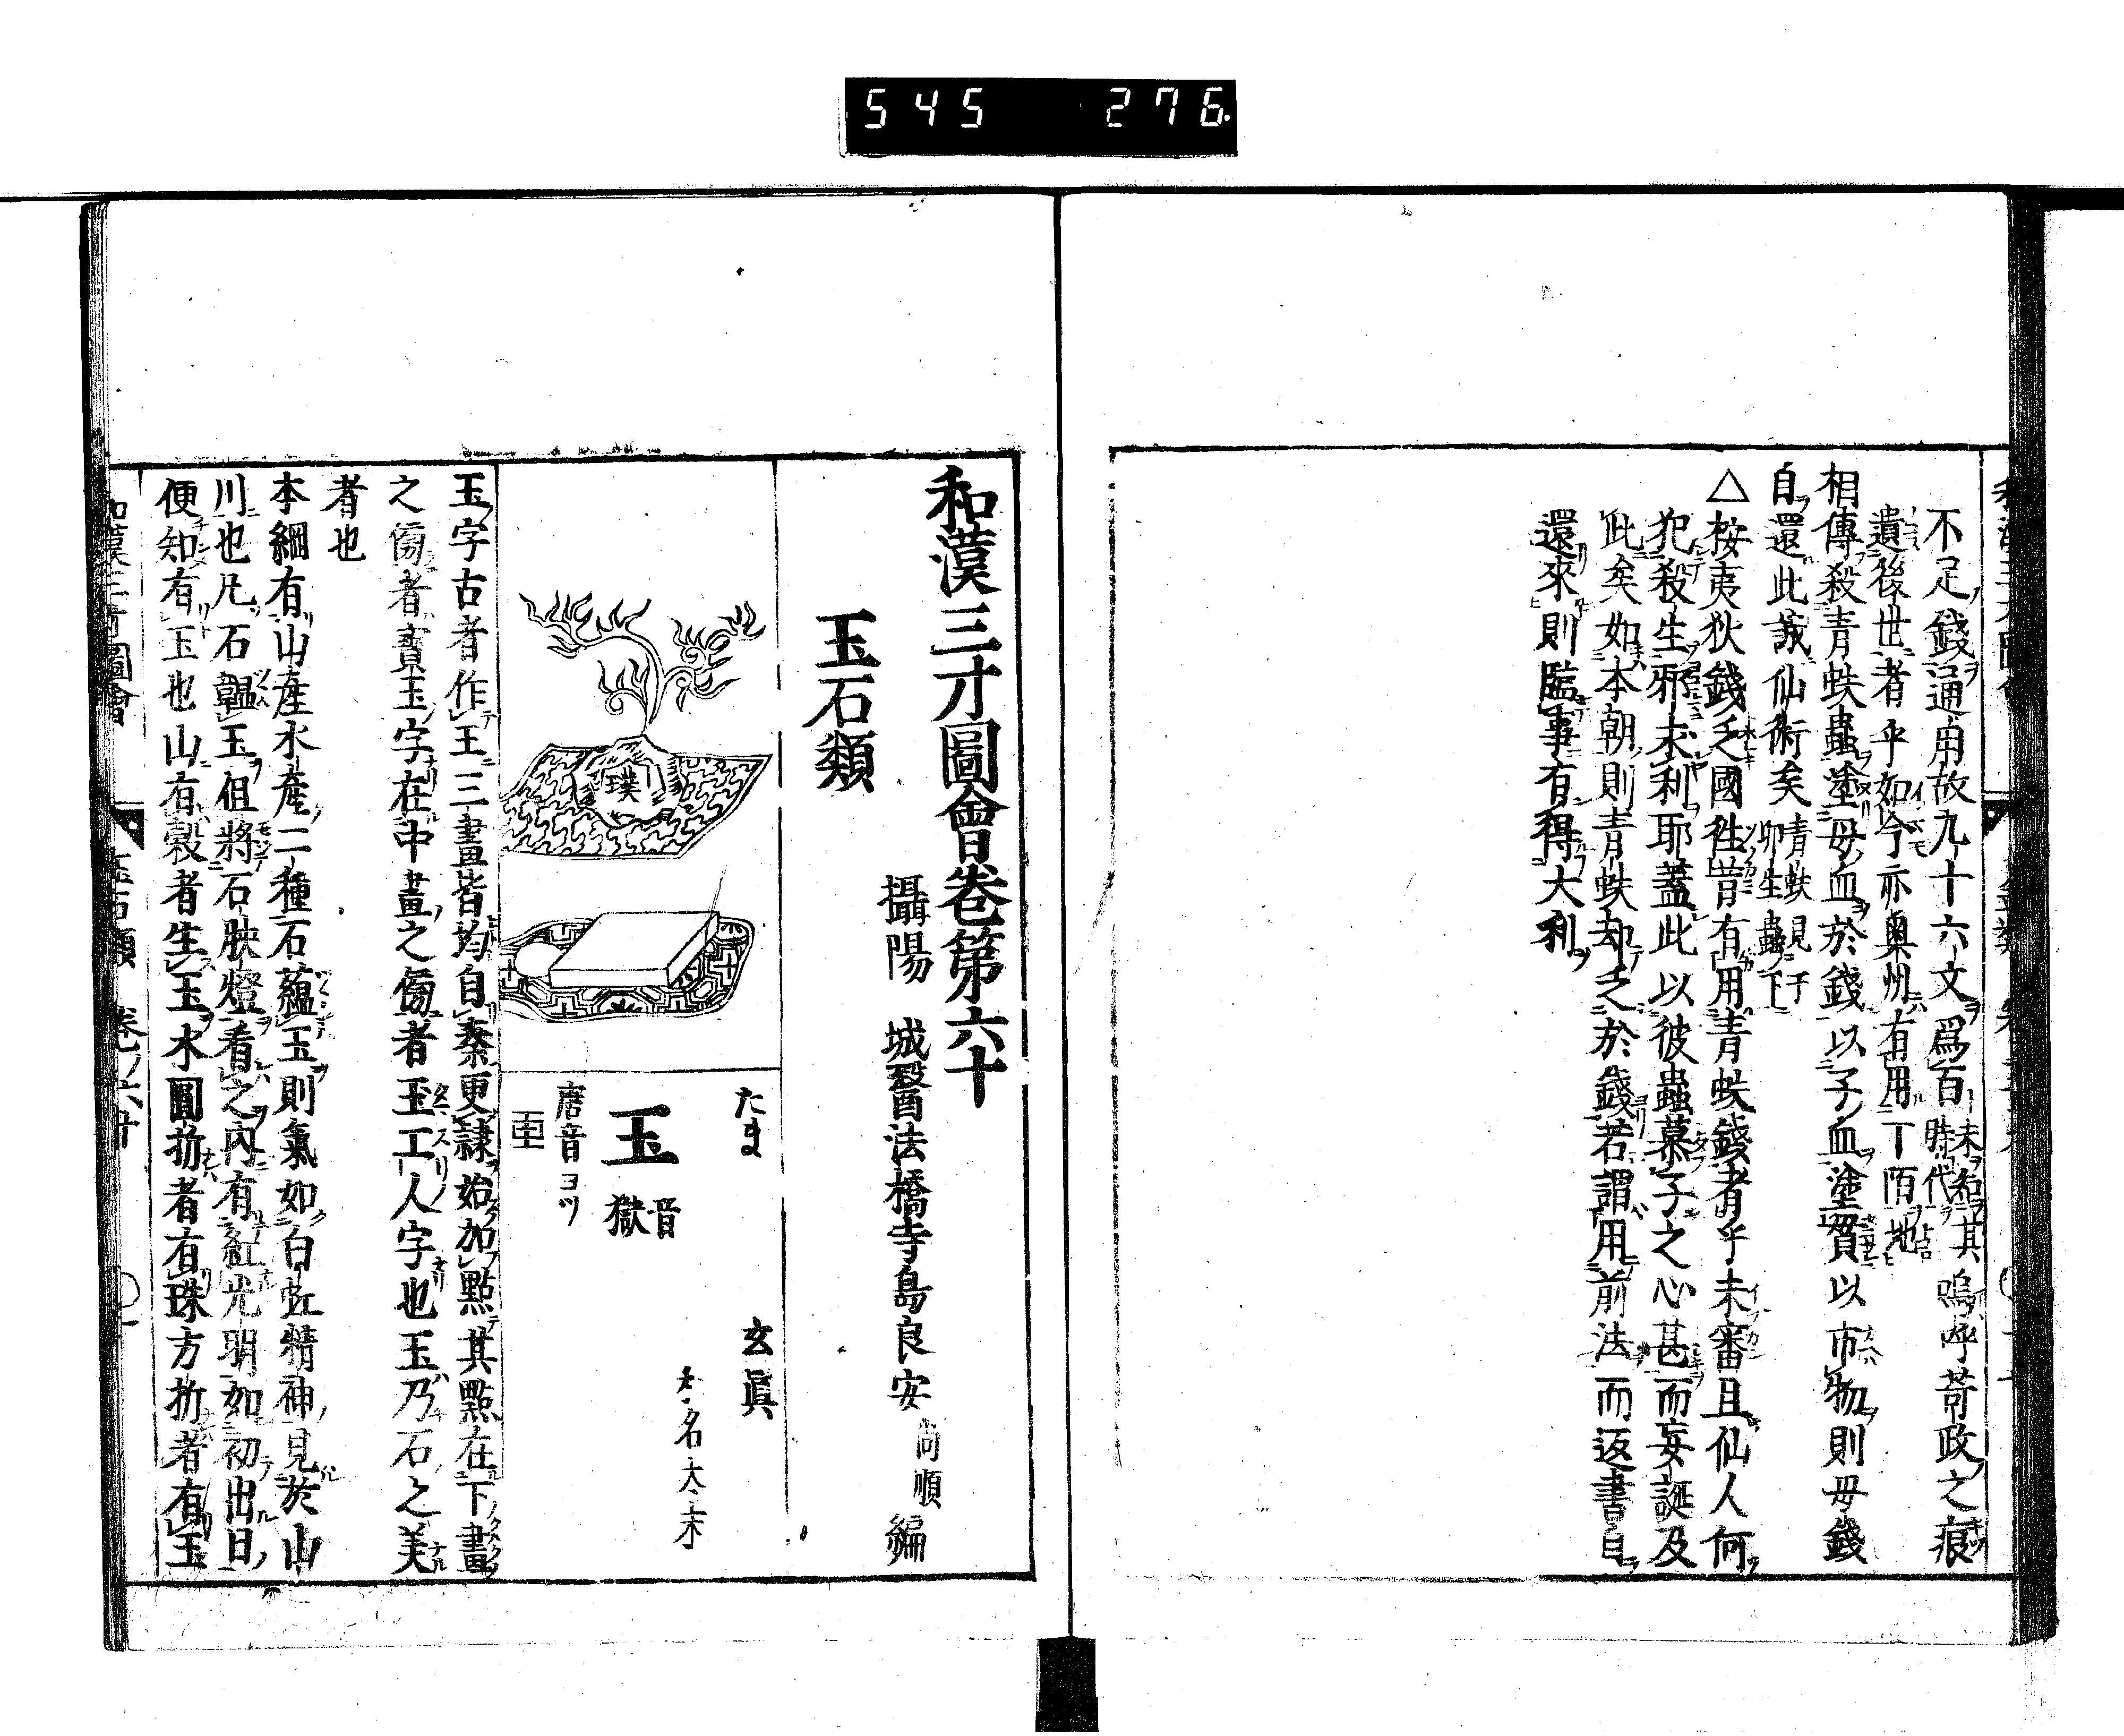 545 276
不足錢通用故九十六文爲百未知其時代嗚呼苛政之痕
遺後世者乎如今亦奧州有用丁陌地
相傳殺青蚨蟲塗母血於錢以子血塗貫以市物則母錢
自還此誠仙術矣青蚨見于卵生蟲下
△桉夷狄錢乏國徃昔有用青蚨錢者乎未審且仙人何
犯殺生邪末利耶蓋此以彼蟲慕子之心甚而妄誕及
此矣如本朝則青蚨却乏於錢若謂用前法而返書自
還來則臨事有得大利
和漢三才圖會卷第六十
攝陽 城醫法橋寺島良安尚順編
玉石類
璞
たま
玉 音獄
唐音ヨツ
玄眞
和名太末
玉字古者作王三畫皆均自秦更隷始加點其點在下畫
之傍者寶玉字在中畫之傍者玉工人字也玉乃石之美
者也
本綱有山產水產二種石蘊玉則氣如白虹精神見於山
川也凡石韞玉但將石映燈看之內有紅光明如初出日
便知有玉也山有穀者生玉水圓折者有珠方折者有玉
和漢三才圖會 玉石類 卷ノ六十